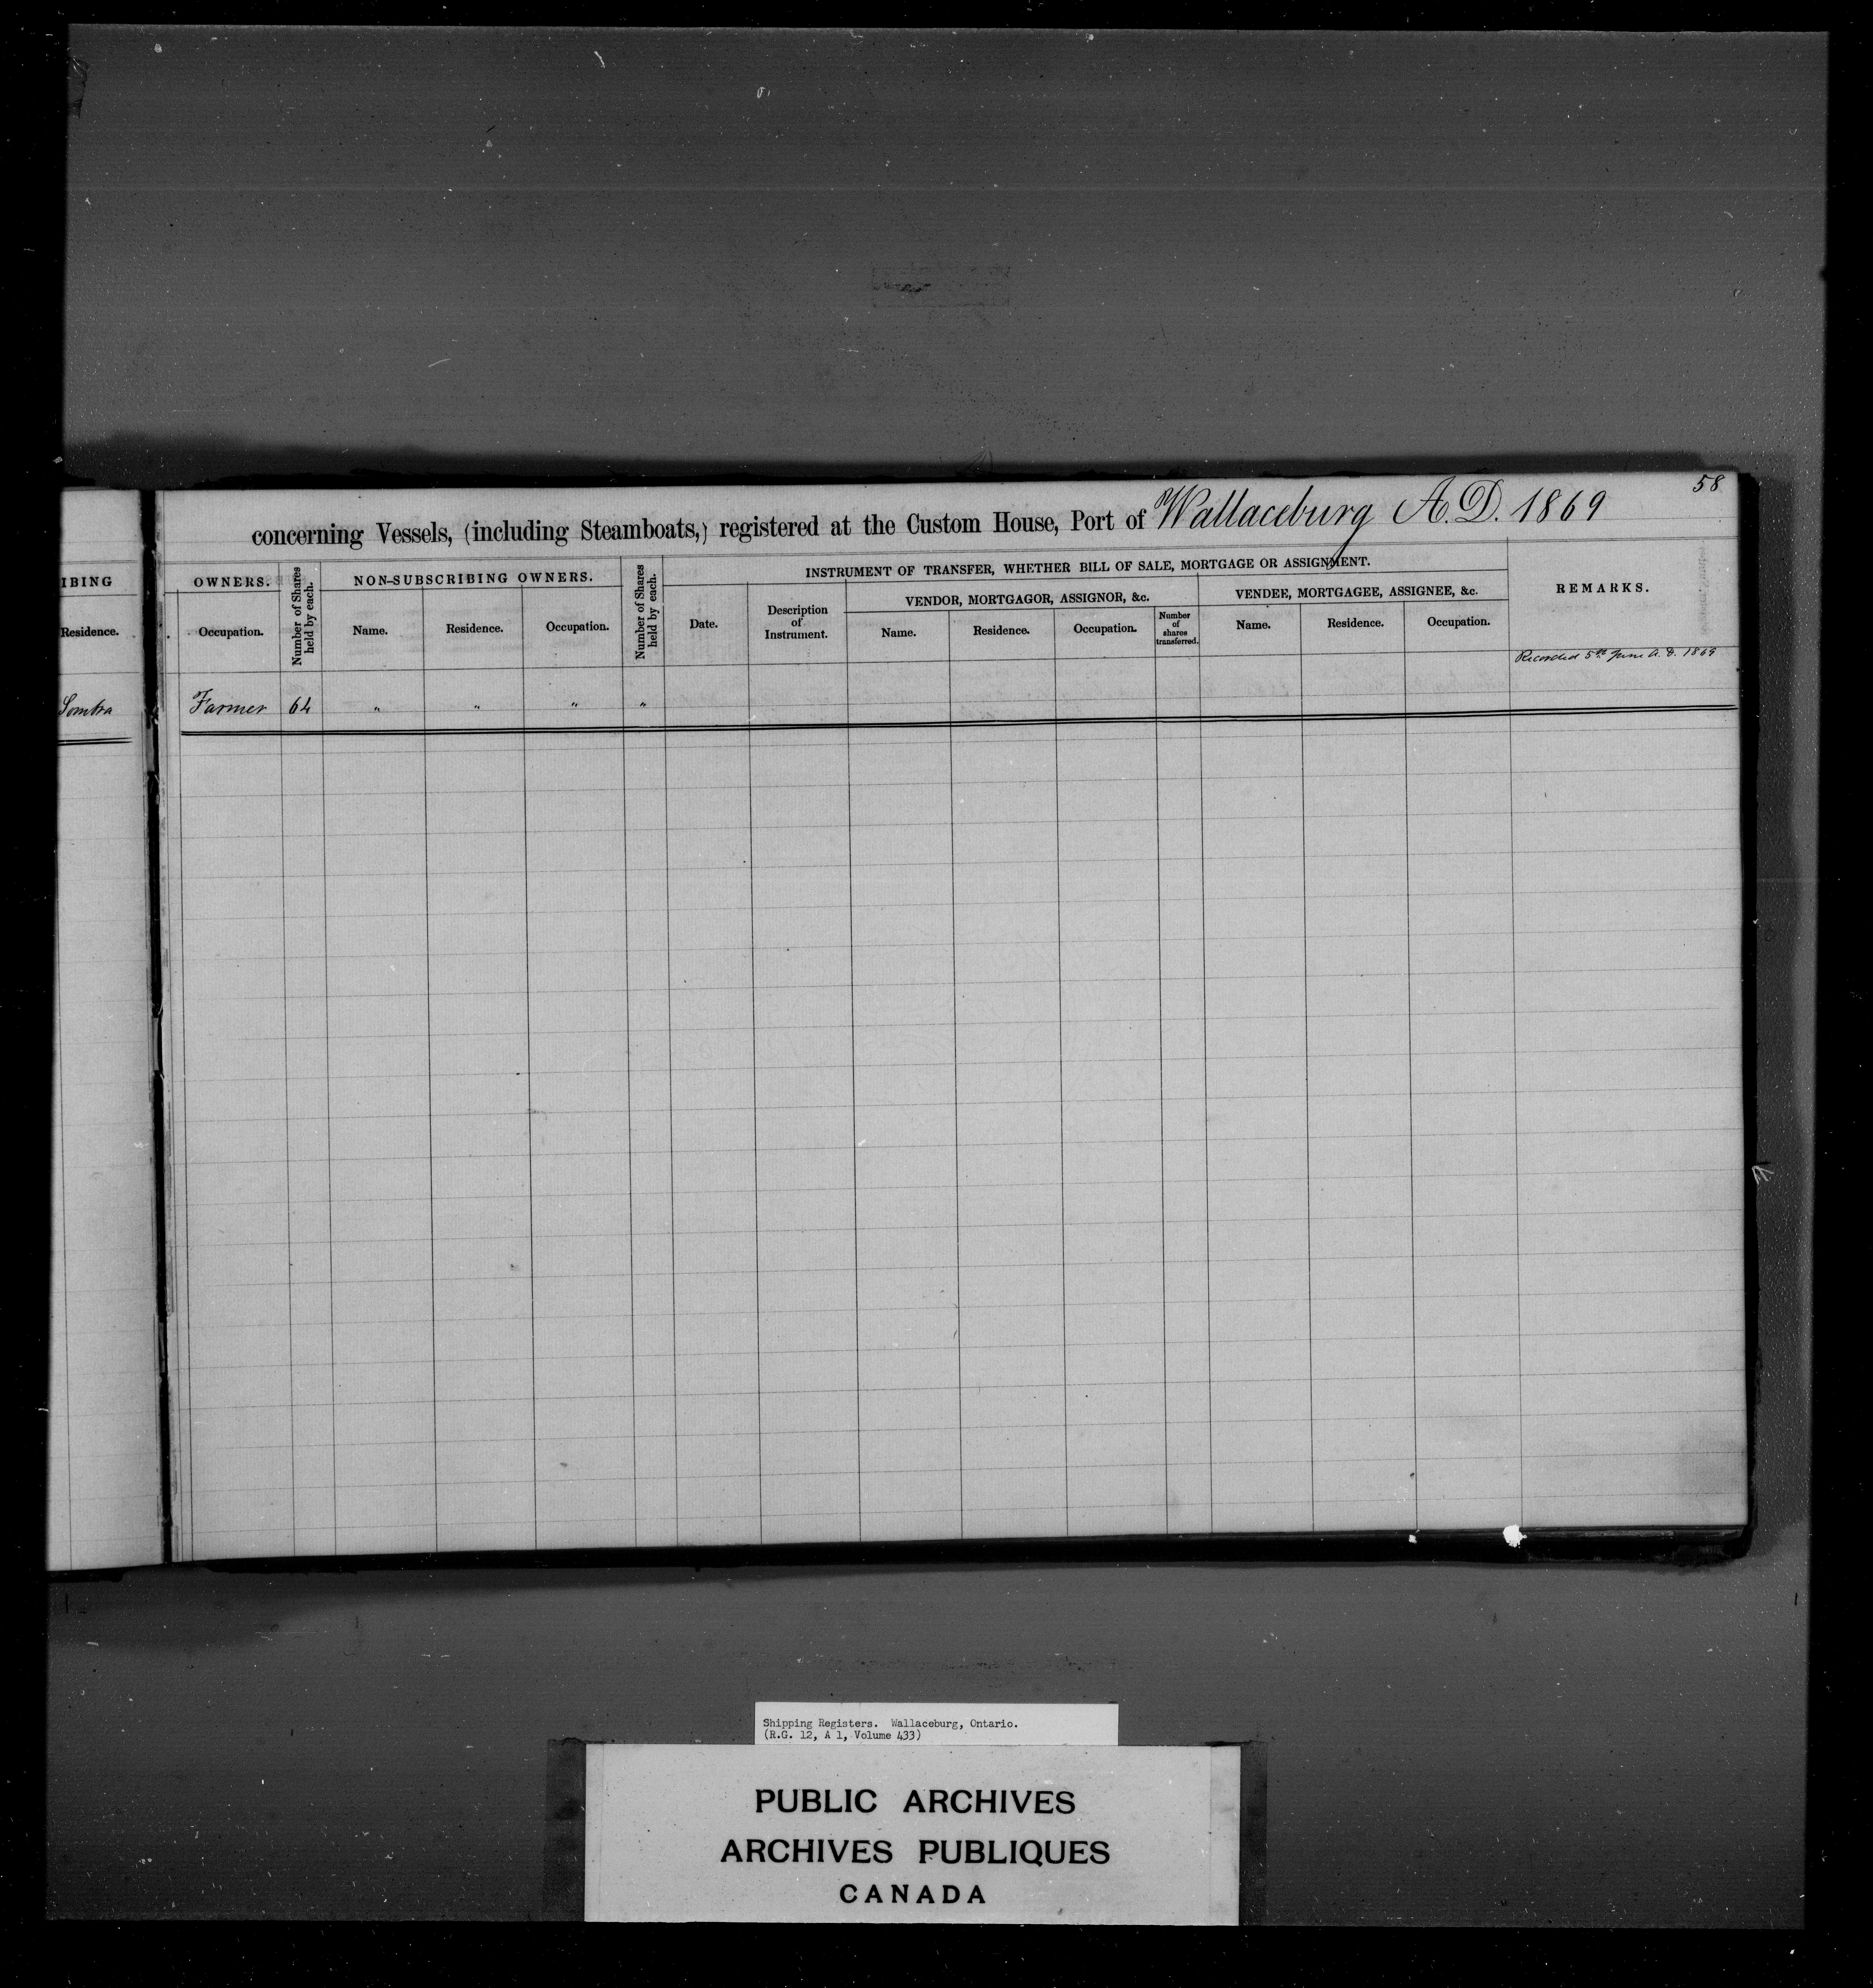 58
concerning Vessels, (including Steamboats,) registered at the Custom House, Port of Wallaceburg A.D. 1869
IBING
OWNERS.
Number of Shares held by each.
NON-SUBSCRIBING OWNERS.
Number of Shares held by each.
INSTRUMENT OF TRANSFER, WHETHER BILL OF SALE, MORTGAGE OR ASSIGNMENT.
REMARKS.
VENDOR, MORTGAGOR, ASSIGNOR, &c.
VENDEE, MORTGAGEE, ASSIGNEE, &c.
Residence.
Occupation.
Name.
Residence.
Occupation.
Date.
Description of Instrument.
Name.
Residence.
Occupation.
Number of shares transferred.
Name.
Residence.
Occupation.
Recorded 5th June A.D. 1869
Sombra Farmer 64 " " " "
Shipping Registers. Wallaceburg, Ontario.
(R.G. 12, A 1, Volume 433)
PUBLIC ARCHIVES
ARCHIVES PUBLIQUES
CANADA